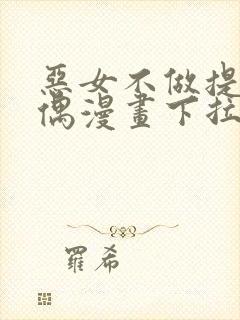 惡女不做提
偶漫畫下拉
羅希